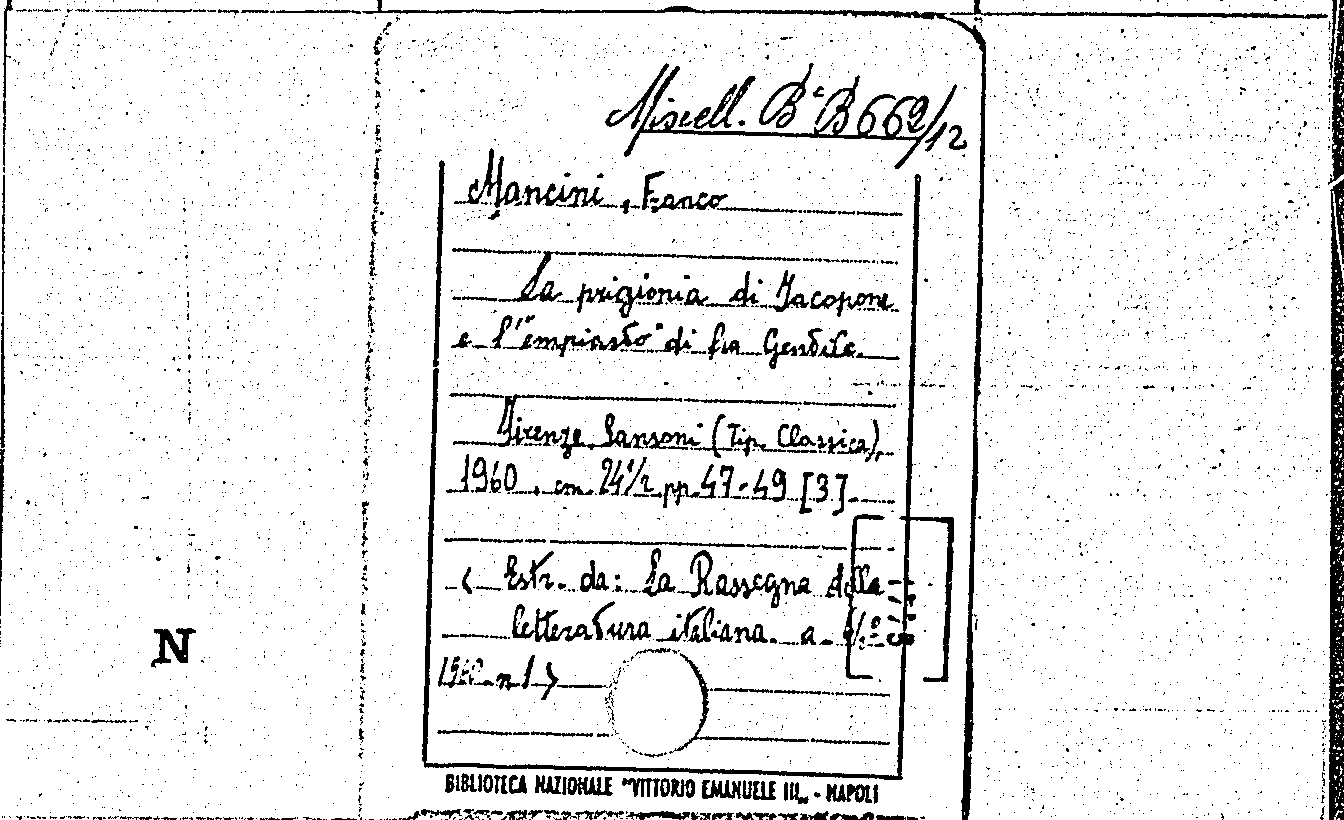 Miscell. B.B 662/12
Mancini, Franco
La prigionia di Jacopone
e l'"empiastro" di fra Gentile.
Firenze, Sansoni (Tip. Classica),
1960, cm. 24½ pp. 47-49 [3].
< Estr. da: La Rassegna della
letteratura italiana. a.
1960 n 1 >
N
BIBLIOTECA NAZIONALE "VITTORIO EMANUELE III„ - NAPOLI